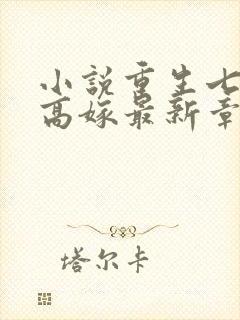 小説重生七
高嫁最新章
塔尔卡